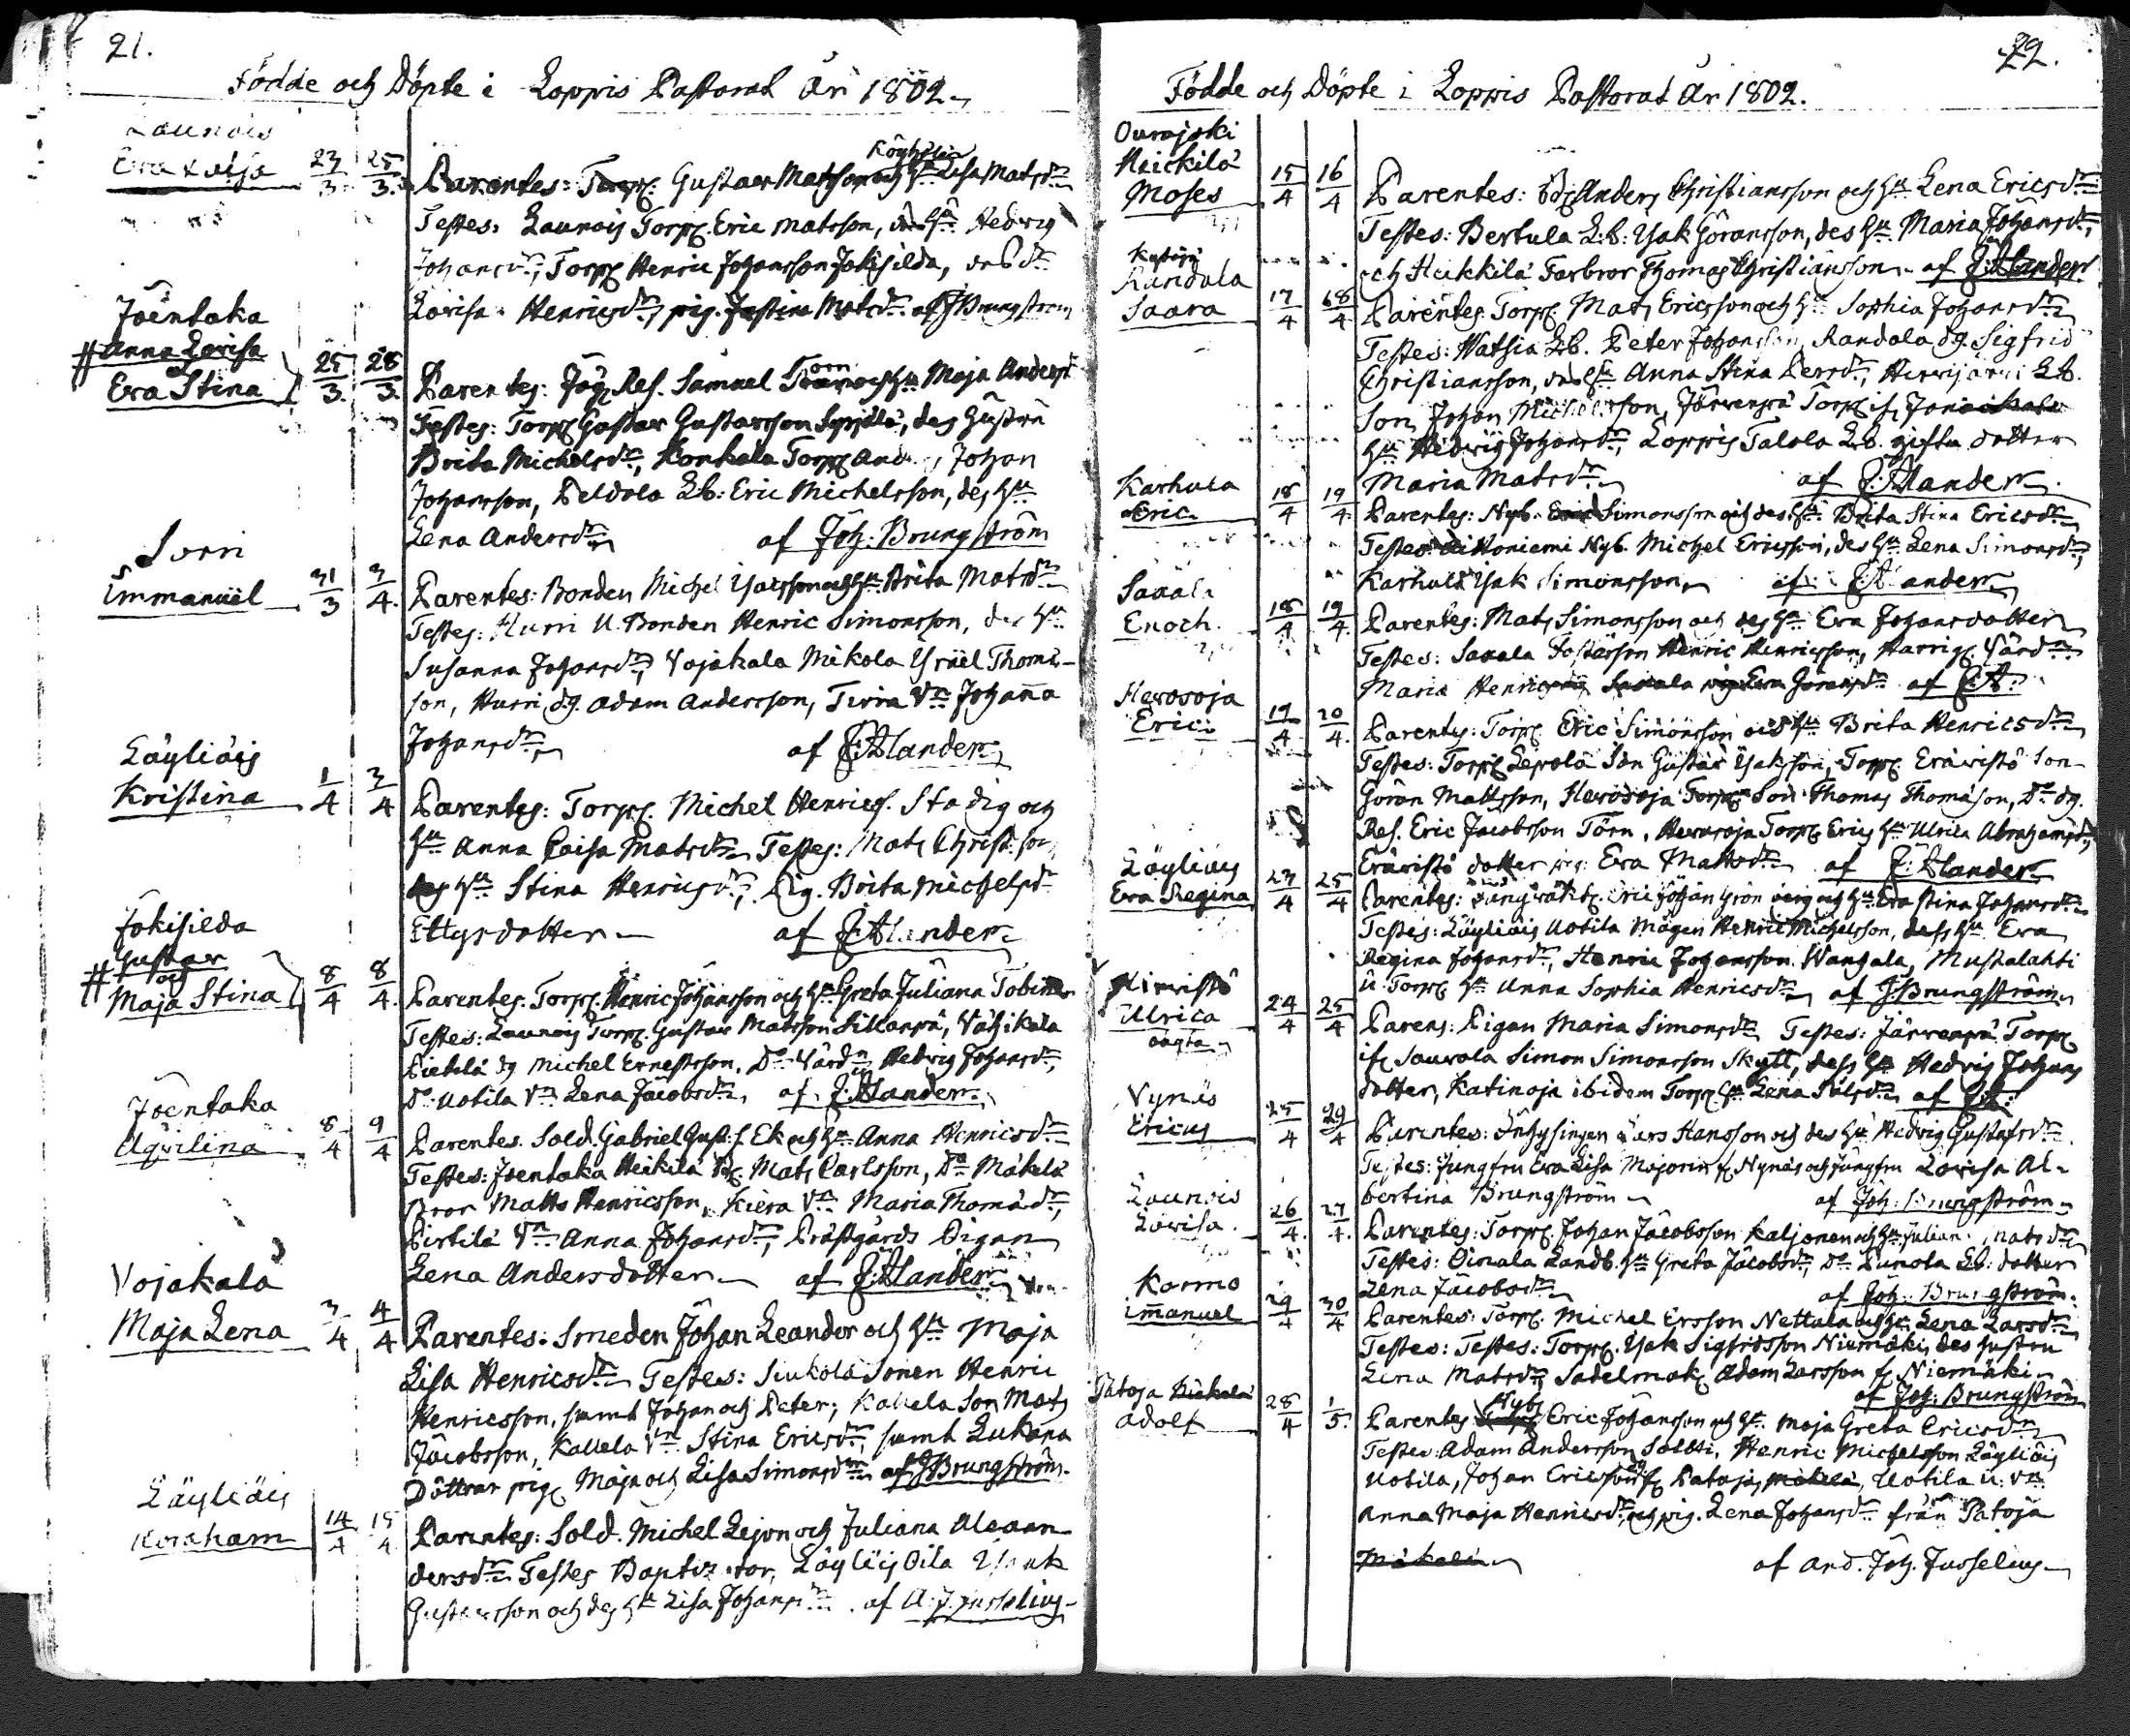 21.
Födde och Döpte i Loppis Pastorat År 1802.
Launois
Eva Caisa 23/3. 25/3. Parentes: Torp. Gustav Matsson och Hu Lisa Matsdr
Testes: Launois Torp. Eric Matsson, Hu Hedwig
Johansdr, Torp. Henric Johansson Jokisilda,
Lovisa Henricsdr, pig. Justina Matsdr af J Brungström
Joentaka
# Anna Lovisa
och
Eva Stina 25/3. 28/3. Parentes: Res. Samuel Torn och Hu Maja Andersdr
Testes: Torp. Gustav Gustavsson Syrjälä, des Hustru
Brita Michelsdr, Konkala Torp. Johan
Johansson, Peldola Lb: Eric Michelsson, des Hu
Lena Andersdr af Joh: Brungström
Immanuel 31/3 3/4. Parentes: Bonden Michel Isacsson och Hu Brita Matsdr
Testes: Hurri U. Bonden Henric Simonsson, des Hu
Susanna Johansdr, Vojakala Mikola Israel Thomas-
son, Hurri dg. Adam Andersson, Tirra Vn Johanna
Johansdr af J: Alander
Läyliäis
Kristina 1/4 3/4 Parentes: Torp. Michel Henrics. Stadig och
Hu Anna Caisa Matsdr Testes: Mats Christ. son,
des Hu Stina Henricsdr, Pig. Brita Michelsdr
Ettysdotter af J: Alander
Jokisilda
# Gustav
och
Maja Stina 8/4 8/4. Parentes. Torp. Henric Johansson och Hu Greta Juliana Tobin
Testes: Launois Torp. Gustav Matsson Sillanpä, Vähikala
Pietilä dg Michel Ernestsson, Do Värdn Hedvig Johansdr,
Do Uotila Vn Lena Jacobsdr af J: Alander
Joentaka
Aqvilina 8/4 9/4 Parentes. Sold. Gabriel Gust: s. Ek och Hu Anna Henricsdr
Testes: Joentaka Heikilä Mats Carlsson, Do Mäkelä
Bror Matts Henricsson, Kiera Vn Maria Thomædr,
Pirtilä Vn Anna Johansdr, Prästgårds Pigan
Lena Andersdotter af J: Alander
Vojakala
Maja Lena 3/4 4/4 Parentes: Smeden Johan Leander och Hu Maja
Lisa Henricsdr Testes: Siukola Sonen Henric
Henricsson, samt Johan och Peter; Kallela Son Mats
Jacobsson, Kallela Vn Stina Ericsdr, samt Lukana
Döttrar pig. Maja och Lisa Simonsdr af J Brungström.
Läyliäis
Abraham 14/4 15/4 Parentes: Sold. Michel Lejon och Juliana Alexan-
dersdr Testes Läyliäis Oila Isaak
Gustavsson och des Hu Lisa Johansdr af A: J. Jusselius
22.
Födde och Döpte i Loppis Pastorat År 1802.
Ourajoki
Heickilä
Moses 15/4 16/4 Parentes: Anders Christiansson och Hu Lena Ericsdr
Testes: Bertula L.b: Isak Göransson, des Hu Maria Johansdr,
och Heikkilä Farbror Thomas Christiansson af J: Alander
Randala
Saara 17/4 18/4 Parentes Torp. Mats Ericsson och Hu Sophia Johansdr
Testes: Watsia Lb. Peter Johansson, Randala dg. Sigfrid
Christiansson, Hu Anna Stina Persdr, Lb.
Son Johan Michelsson, Järvenpä Torp. if.
Hu Hedvig Johansdr, Loppis Talola Lb. gifta dotter
Maria Matsdr af J: Alander.
Karhula
Eric 18/4 19/4. Parentes: Nyb. Eric Simonsson och des Hu Brita Stina Ericsdr
Testes: Honiemi Nyb. Michel Ericsson, des Hu Lena Simonsdr,
Karhula Isak Simonsson af J: Alander
Enoch. 18/4 19/4. Parentes: Mats Simonsson och des Hu Eva Johansdotter
Testes: Henric Henricsson, Värdn
Maria Henricsdr pig Eva Göransdr af J: A.
Herosoja
Eric 19/4 20/4. Parentes: Torp. Eric Simonsson och Hu Brita Henricsdr
Testes: Torp. Lepola Son Gustav Isaksson, Torp. Eräwistö Son
Göran Mattsson, Herosoja Torp. Son Thomas Thomasson, Do dg.
Res. Eric Jacobsson Törn, Herosoja Torp. Erics Hu Ulrica Abrahamsdr,
Eräwistö dotter pig: Eva Mattsdr af J: Alander
Läyliäis
Eva Regina 23/4 25/4 Parentes: Eric Johan Grön och Hu Eva Stina Johansdr
Testes: Läyliäis Uotila Mågen Henric Michelsson, dess Hu Eva
Regina Johansdr, Henric Johansson Wangala, Mustalahti
u. Torp. Hu Anna Sophia Henricsdr af J Brungström
Kiwistö
Ulrica
oägta 24/4 25/4 Parens: Pigan Maria Simonsdr Testes: Järvenpä Torp.
if. Saurola Simon Simonsson Skytt, dess Hu Hedvig Johans
dotter, Katinoja ibidem Torp. Hu Lena af J: A:
Nynäs
Ericus 25/4 29/4 Parentes: Inhysingen Lars Hansson och des Hu Hedvig Gustafsdr.
Testes: Jungfru Eva Lisa Majorin f. Nynäs och Jungfru Lovisa Al-
bertina Brungström af Joh: Brungström
Launois
Lovisa. 26/4. 27/4. Parentes: Torp. Johan Jacobsson Kaljonen och Hu Julian. Matsdr
Testes: Oinala Landb. Hu Greta Jacobsdr, Do Lb: dotter
Lena Jacobsdr af Joh: Brungström.
Kormo
Imanuel 29/4 30/4 Parentes: Torp. Michel Ersson Nettula och Hu Lena Larsdr
Testes: Testes: Torp. Isak Sigfridsson Niemäki, des Hustru
Lena Matsdr, Sadelmak. Adam Larsson f. Niemäki
af Joh: Brungström
Patoja Mäkelä
Adolf 28/4 1/5. Parentes Nyb. Eric Johansson och Hu Maja Greta Ericsdr
Testes: Adam Andersson Saltti, Henric Michelsson Läyliäis
Uotila, Johan Ericsson f. Patoja Mäkelä, Uotila u: Vn
Anna Maja Henricsdr, och pig. Lena Johansdr från Patoja
Mäkelä af And. Joh. Jusselius